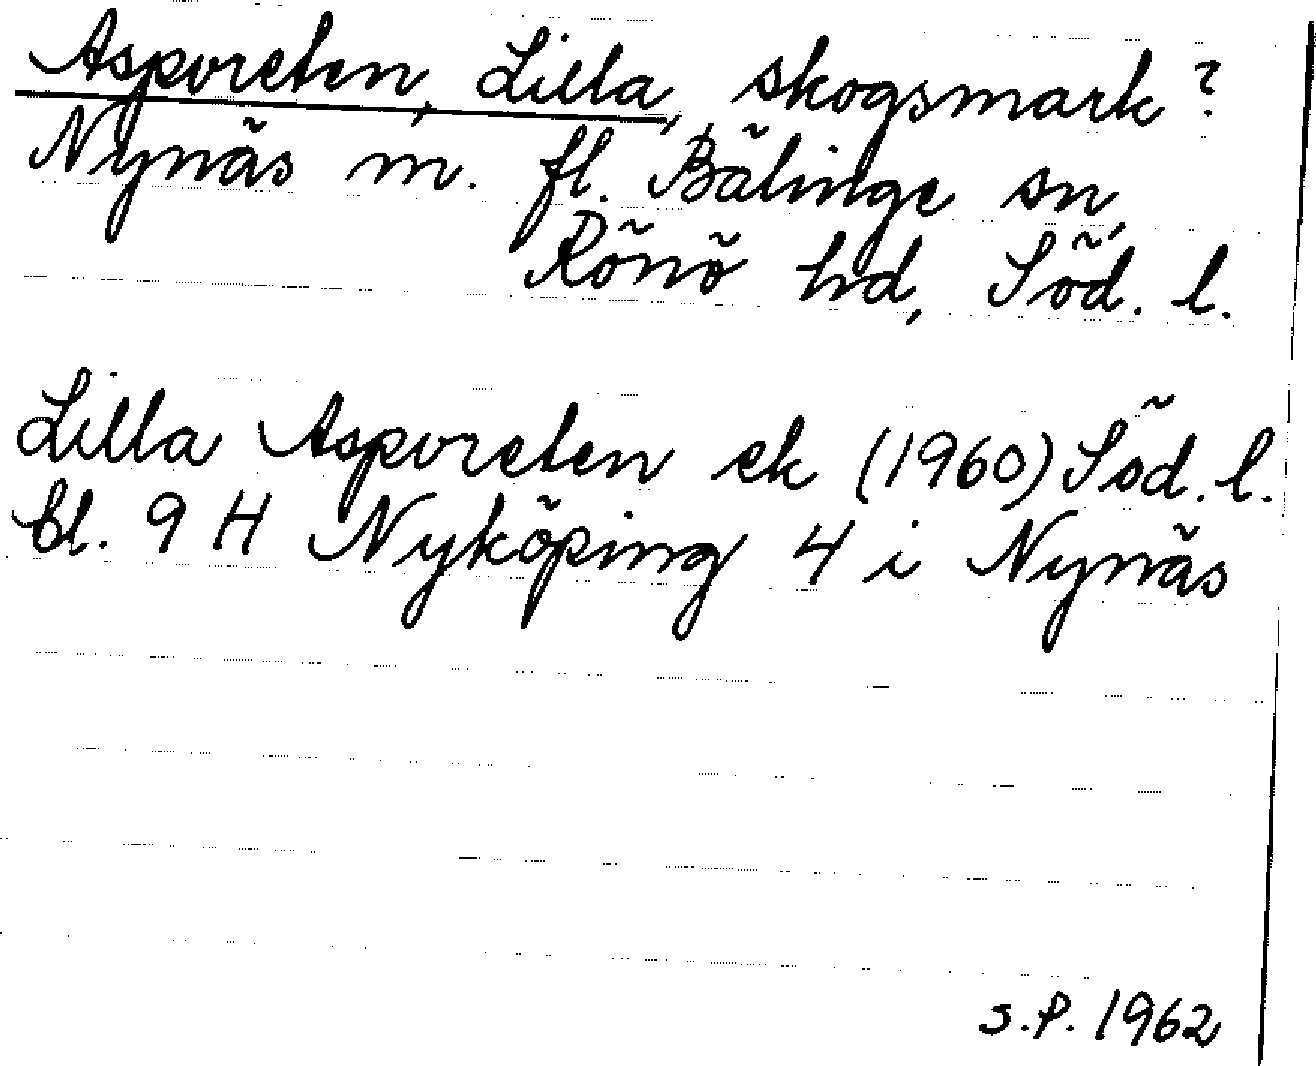 Asporeten, Lilla, skogsmark?
Nynäs m. fl. Bälinge sn,
Rönö hd, Söd. l.
Lilla Asporeten ek (1960) Söd. l.
bl. 9 H Nyköping 4 i Nynäs
S.P. 1962